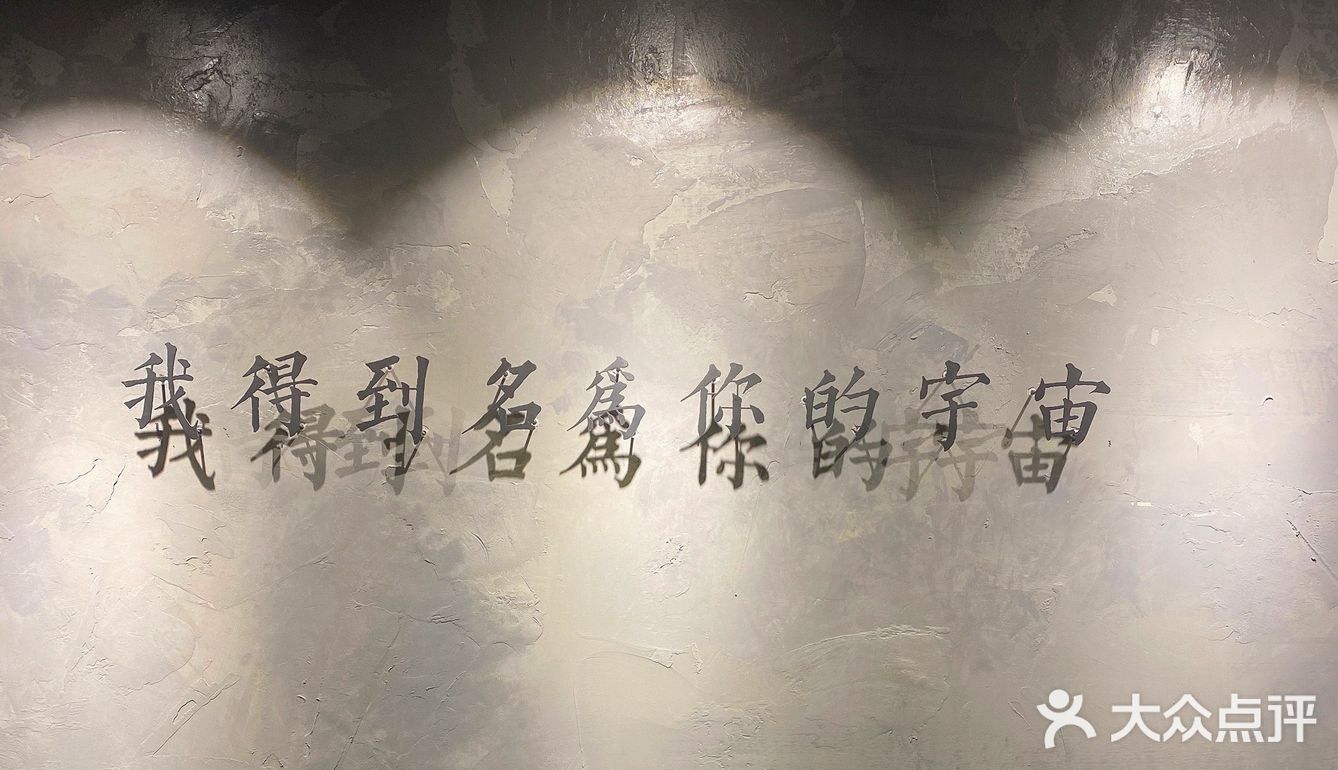 我得到名為你的宇宙
大众点评